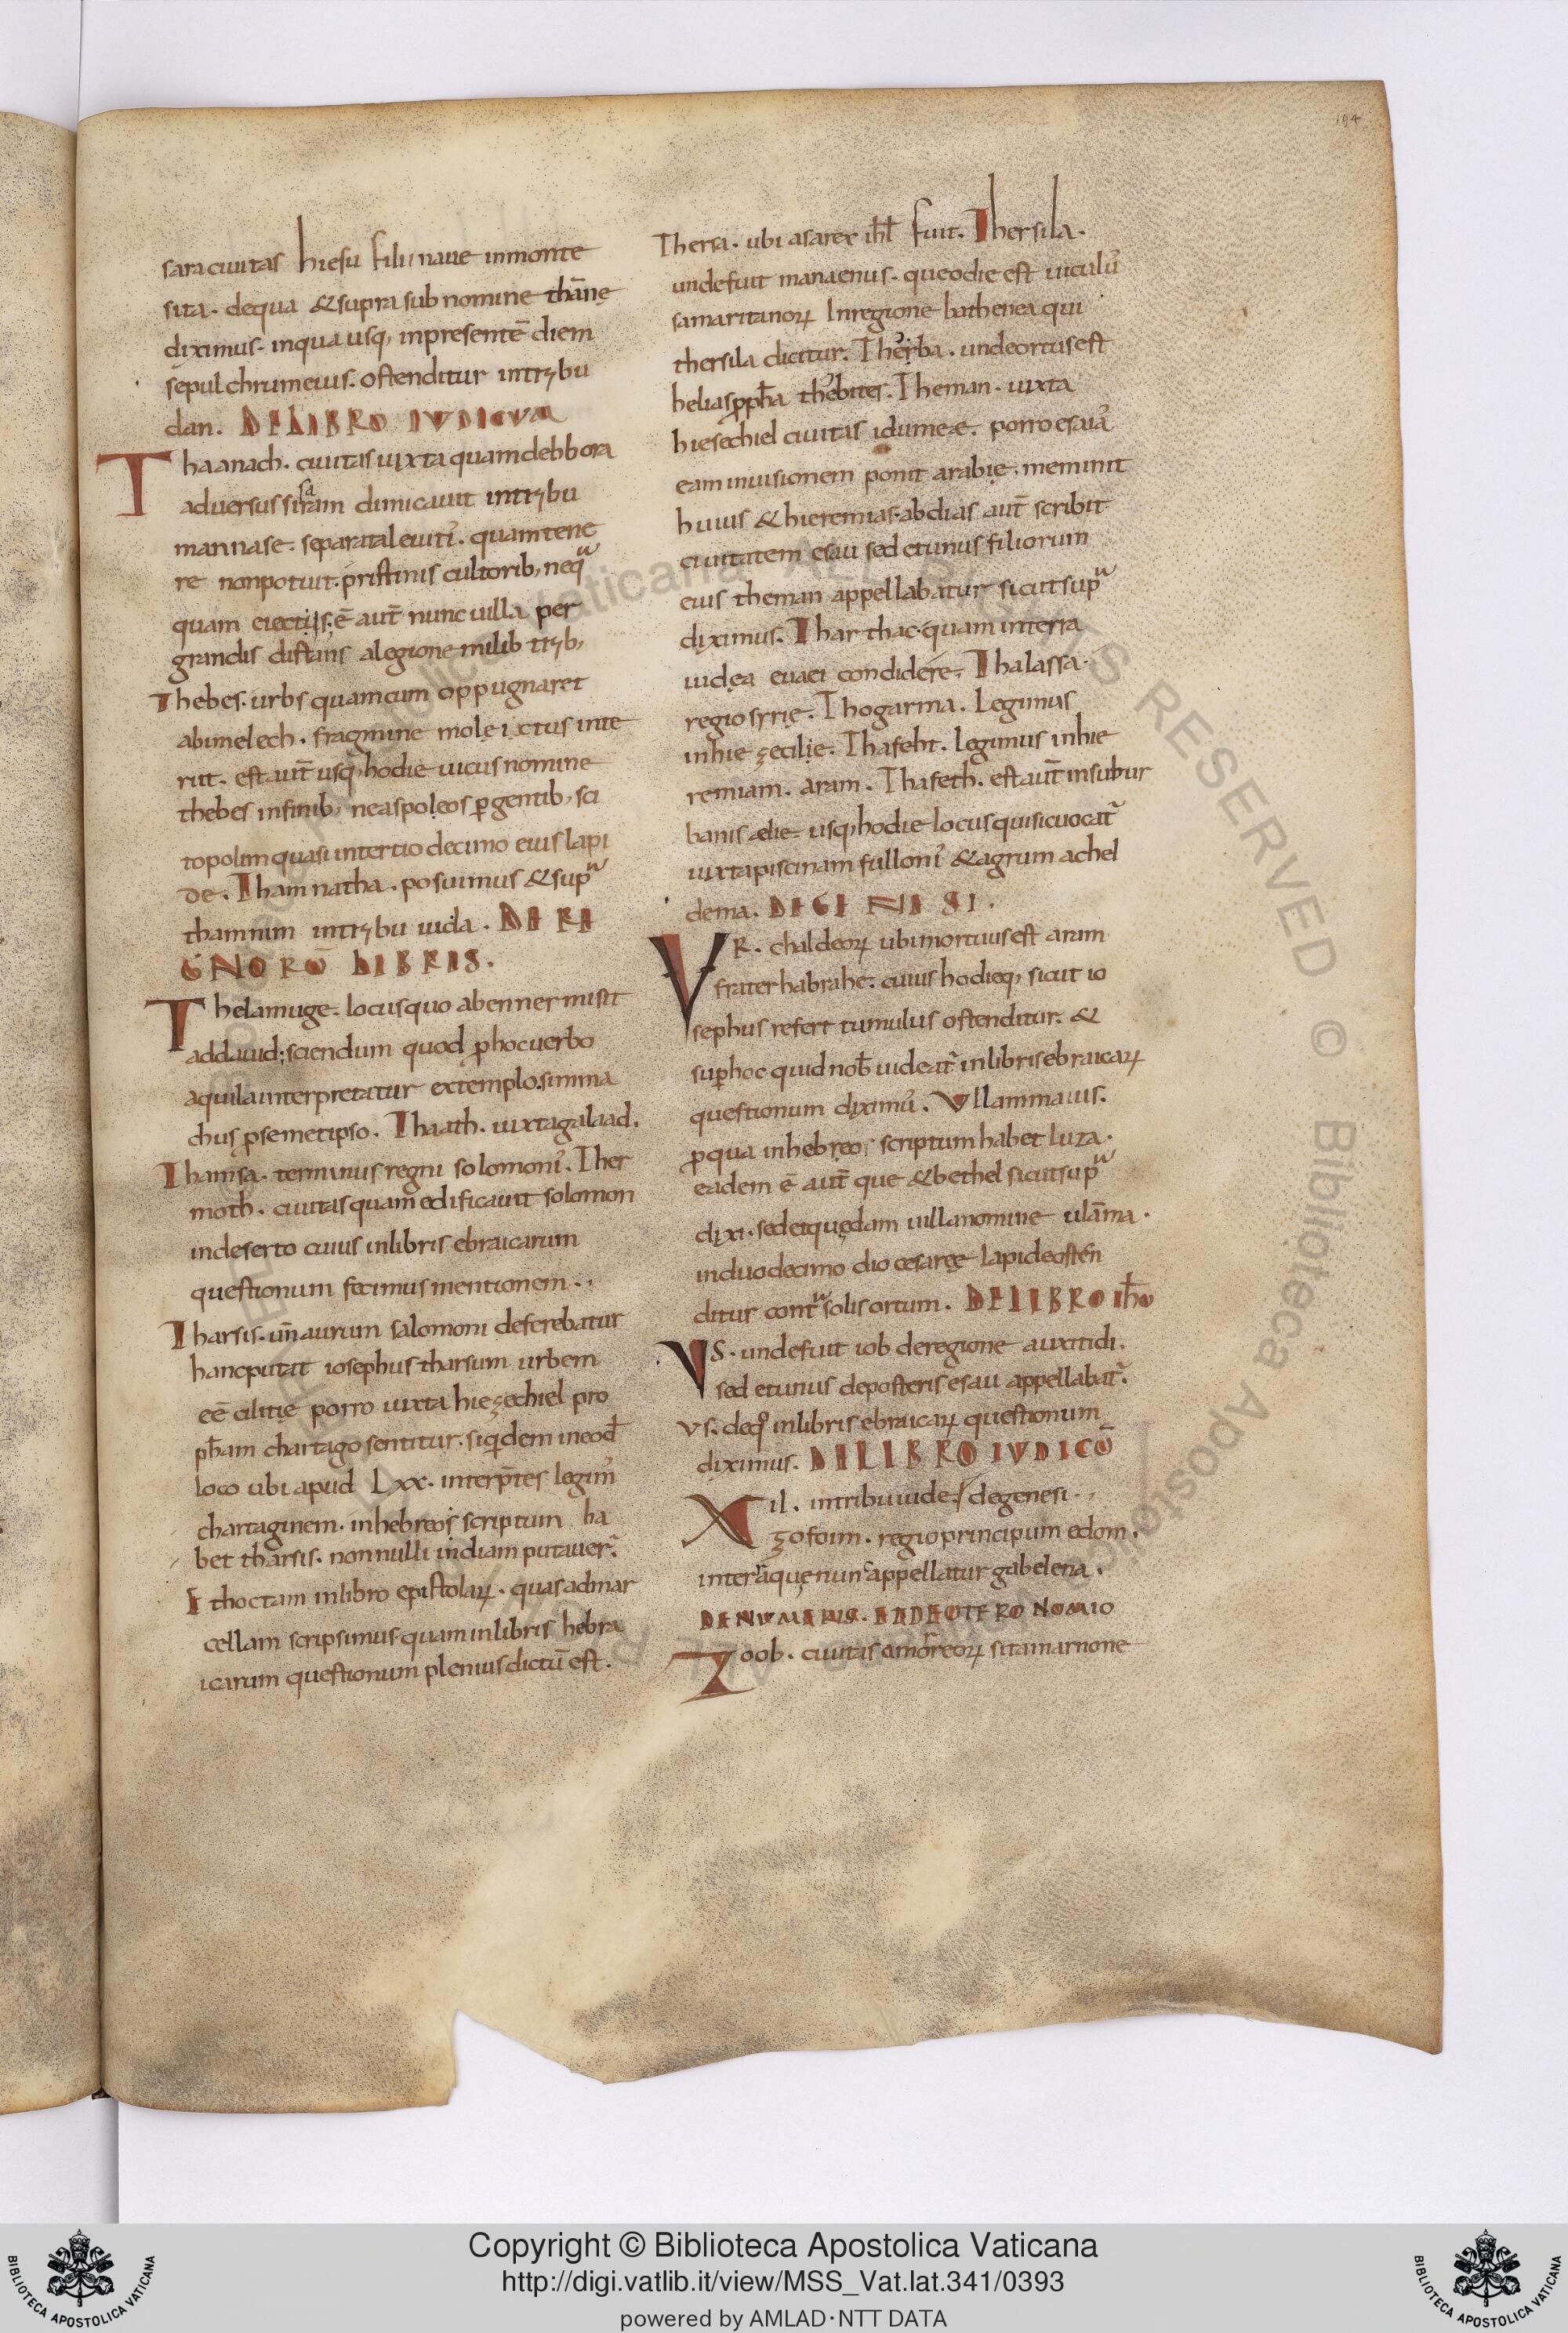 194
sara ciuitas hiesu filii naue inmonte
sita. dequa & supra sub nomine thāne
diximus. inqua usq; inpresentē diem
sepulchrum eius. ostenditur intrybu
dan. DE LIBRO IVDICVM
Thaanach. ciuitas iuxta quam debbora
aduersus siram dimicauit intrybu
sa
mannase. separata leuiti'. quam tene
re non potuit. pristinis cultorib; neq
quam eiectiis; ē aut̄ nunc uilla per
grandis distans alegione milib tryb;
Thebes. urbs quam cum oppugnaret
abimelech. fragmine molę ictus inte
riit. est aut̄ usq; hodie uicus nomine
thebes infinib; neaspoleos pgentib; sci
topolim quasi intertio decimo eius lapi
de. Thamnatha. posuimus & sup
thamnim intrybu iuda. DE RE
GNORŌ LIBRIS.
Thelamuge. locus quo abenner misit
addauid; sciendum quod phoc uerbo
aquila interpretatur extemplo. simma
chus psemetipso. Thaath. iuxta galaad.
Thamsa. terminus regni solomoni'. Ther
moth. ciuitas quam edificauit solomon
indeserto cuius inlibris ebraicarum
questionum fecimus mentionem.,
Tharsis. un̄ aurum salomoni deferebatur
hanc putat iosephus tharsum urbem
eē cilitię porro iuxta hiezechiel pro
ph̄am chartago sentitur. siqdem ineod̄
loco ubi apud Lxx. interp̄tes legim'
chartaginem. inhebreos scriptum ha
bet tharsis. nonnulli indiam putauer̄.
Ithoctam inlibro epistolaꝝ. quas admar
cellam scripsimus. quam inlibris hebra
icarum questionum plenius dictū est.
Thersa. ubi asa rex ihl̄ fuit. Thersila.
unde fuit manaenus. que odie est uiculu'
samaritanoꝝ Inregione bathenea qui
thersila dicitur. Therba. unde ortus est
helias pph̄a thebites. Theman. iuxta
hiesechiel ciuitas idumeæ. porro esaia'
eam inuisionem ponit arabię. meminit
huius & hieremias. abdias aut̄ scribit
ciuitatem esau sed etunus filiorum
eius theman appellabatur sicut sup
diximus. Tharthac. quam interra
iudęa euaei condidere. Thalassa.
regio syrię. Thogarma. Legimus
inhiezecilie. Thafeht. legimus inhie
remiam. aram. Thafeth. est aut̄ insubur
banis ædie usq; hodie locus qui sic uocat̄
iuxta piscinam fulloni' & agrum achel
dema. DE GENESI.
VR. chaldeoꝝ ubi mortuus est aram
frater habrahe. cuius hodieq; sicut io
sephus refert tumulus ostenditur. &
suphoc quid nob̄ uideat̄ inlibris ebraicaꝝ
questionum diximu'. Vllammaius.
pqua inhebręo; scriptum habet luza.
eadem ē aut̄ que & bethel sicut sup
dixi. sed et quędam uilla nomine ulām̄a.
induodecimo diocesaręę lapide osten
ditur cont solis ortum. DE LIBRO Ih̄o
VS. unde fuit iob de regione auxitidi.
sed etunus deposteris esau appellabat̄.
vs. deq° inlibris ebraicaꝝ questionum
diximus. DE LIBRO IVDICŌ
Xil. intribu iude. / degenesi.,
zofoim. regio principum edom.
interra quę nunc appellatur gabelena.
DE NVMERIS. ET DEOTERONOMIO
Zoob. ciuitas amorreoꝝ sita inarnone
Copyright © Biblioteca Apostolica Vaticana
http://digi.vatlib.it/view/MSS_Vat.lat.341/0393
powered by AMLAD·NTT DATA
BIBLIOTECA APOSTOLICA VATICANA
BIBLIOTECA APOSTOLICA VATICANA